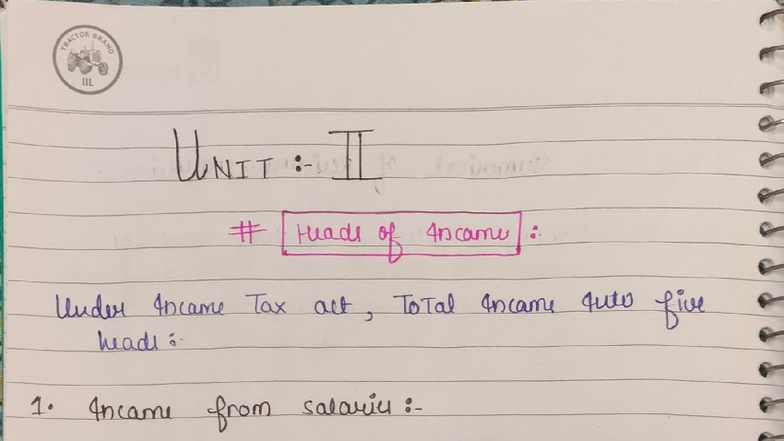 TRACTOR BRAND
IIL
UNIT :- II
# Heads of Income :
Under Income Tax act, Total Income into five
heads :
1. Income from salaries :-